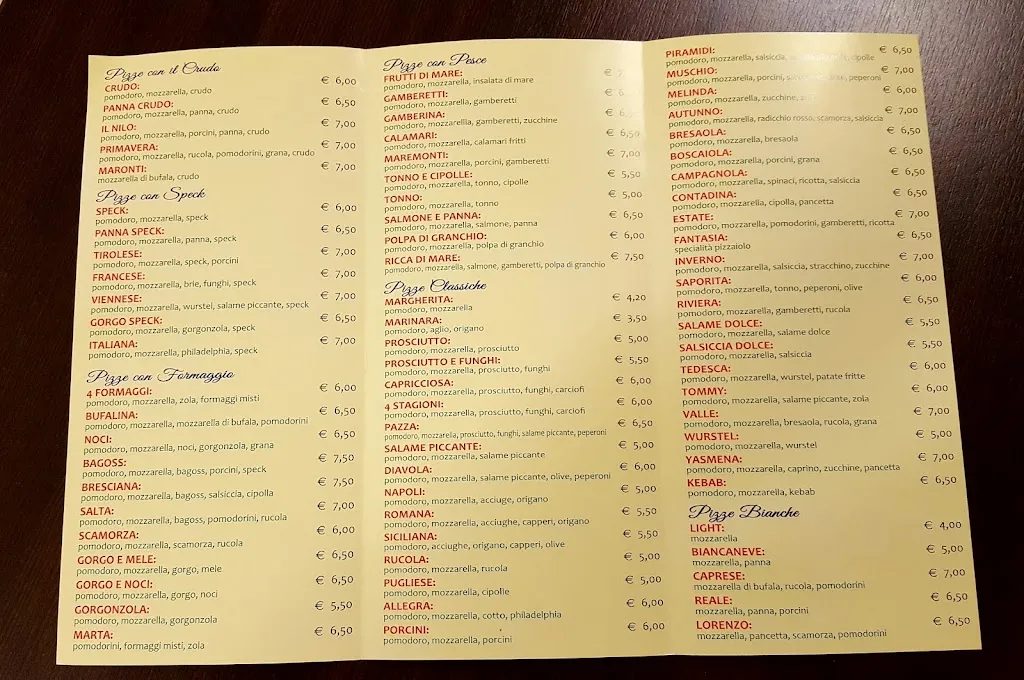 Pizze con il Crudo
CRUDO: € 6,00
pomodoro, mozzarella, crudo
PANNA CRUDO: € 6,50
pomodoro, mozzarella, panna, crudo
IL NILO: € 7,00
pomodoro, mozzarella, porcini, panna, crudo
PRIMAVERA: € 7,00
pomodoro, mozzarella, rucola, pomodorini, grana, crudo
MARONTI: € 7,00
mozzarella di bufala, crudo
Pizze con Speck
SPECK: € 6,00
pomodoro, mozzarella, speck
PANNA SPECK: € 6,50
pomodoro, mozzarella, panna, speck
TIROLESE: € 7,00
pomodoro, mozzarella, speck, porcini
FRANCESE: € 7,00
pomodoro, mozzarella, brie, funghi, speck
VIENNESE: € 7,00
pomodoro, mozzarella, wurstel, salame piccante, speck
GORGO SPECK: € 6,50
pomodoro, mozzarella, gorgonzola, speck
ITALIANA: € 7,00
pomodoro, mozzarella, philadelphia, speck
Pizze con Formaggio
4 FORMAGGI: € 6,00
pomodoro, mozzarella, zola, formaggi misti
BUFALINA: € 6,50
pomodoro, mozzarella, mozzarella di bufala, pomodorini
NOCI: € 6,50
pomodoro, mozzarella, noci, gorgonzola, grana
BAGOSS: € 7,50
pomodoro, mozzarella, bagoss, porcini, speck
BRESCIANA: € 7,50
pomodoro, mozzarella, bagoss, salsiccia, cipolla
SALTA: € 7,00
pomodoro, mozzarella, bagoss, pomodorini, rucola
SCAMORZA: € 6,00
pomodoro, mozzarella, scamorza, rucola
GORGO E MELE: € 6,50
pomodoro, mozzarella, gorgo, mele
GORGO E NOCI: € 6,50
pomodoro, mozzarella, gorgo, noci
GORGONZOLA: € 5,50
pomodoro, mozzarella, gorgonzola
MARTA: € 6,50
pomodorini, formaggi misti, zola
Pizze con Pesce
FRUTTI DI MARE: € 7
pomodoro, mozzarella, insalata di mare
GAMBERETTI: € 6
pomodoro, mozzarella, gamberetti
GAMBERINA: € 6
pomodoro, mozzarella, gamberetti, zucchine
CALAMARI: € 6,50
pomodoro, mozzarella, calamari fritti
MAREMONTI: € 7,00
pomodoro, mozzarella, porcini, gamberetti
TONNO E CIPOLLE: € 5,50
pomodoro, mozzarella, tonno, cipolle
TONNO: € 5,00
pomodoro, mozzarella, tonno
SALMONE E PANNA: € 6,50
pomodoro, mozzarella, salmone, panna
POLPA DI GRANCHIO: € 6,00
pomodoro, mozzarella, polpa di granchio
RICCA DI MARE: € 7,50
pomodoro, mozzarella, salmone, gamberetti, polpa di granchio
Pizze Classiche
MARGHERITA: € 4,20
pomodoro, mozzarella
MARINARA: € 3,50
pomodoro, aglio, origano
PROSCIUTTO: € 5,00
pomodoro, mozzarella, prosciutto
PROSCIUTTO E FUNGHI: € 5,50
pomodoro, mozzarella, prosciutto, funghi
CAPRICCIOSA: € 6,00
pomodoro, mozzarella, prosciutto, funghi, carciofi
4 STAGIONI: € 6,00
pomodoro, mozzarella, prosciutto, funghi, carciofi
PAZZA: € 6,50
pomodoro, mozzarella, prosciutto, funghi, salame piccante, peperoni
SALAME PICCANTE: € 5,00
pomodoro, mozzarella, salame piccante
DIAVOLA: € 6,00
pomodoro, mozzarella, salame piccante, olive, peperoni
NAPOLI: € 5,00
pomodoro, mozzarella, acciuge, origano
ROMANA: € 5,50
pomodoro, mozzarella, acciughe, capperi, origano
SICILIANA: € 5,50
pomodoro, acciughe, origano, capperi, olive
RUCOLA: € 5,00
pomodoro, mozzarella, rucola
PUGLIESE: € 5,00
pomodoro, mozzarella, cipolle
ALLEGRA: € 6,00
pomodoro, mozzarella, cotto, philadelphia
PORCINI: € 6,00
pomodoro, mozzarella, porcini
PIRAMIDI: € 6,50
pomodoro, mozzarella, salsiccia, cipolle
MUSCHIO: € 7,00
pomodoro, mozzarella, porcini, peperoni
MELINDA: € 6,00
pomodoro, mozzarella, zucchine,
AUTUNNO: € 7,00
pomodoro, mozzarella, radicchio rosso, scamorza, salsiccia
BRESAOLA: € 6,50
pomodoro, mozzarella, bresaola
BOSCAIOLA: € 6,50
pomodoro, mozzarella, porcini, grana
CAMPAGNOLA: € 6,50
pomodoro, mozzarella, spinaci, ricotta, salsiccia
CONTADINA: € 6,50
pomodoro, mozzarella, cipolla, pancetta
ESTATE: € 7,00
pomodoro, mozzarella, pomodorini, gamberetti, ricotta
FANTASIA: € 6,50
specialità pizzaiolo
INVERNO: € 7,00
pomodoro, mozzarella, salsiccia, stracchino, zucchine
SAPORITA: € 6,00
pomodoro, mozzarella, tonno, peperoni, olive
RIVIERA: € 6,50
pomodoro, mozzarella, gamberetti, rucola
SALAME DOLCE: € 5,50
pomodoro, mozzarella, salame dolce
SALSICCIA DOLCE: € 5,50
pomodoro, mozzarella, salsiccia
TEDESCA: € 6,00
pomodoro, mozzarella, wurstel, patate fritte
TOMMY: € 6,00
pomodoro, mozzarella, salame piccante, zola
VALLE: € 7,00
pomodoro, mozzarella, bresaola, rucola, grana
WURSTEL: € 5,00
pomodoro, mozzarella, wurstel
YASMENA: € 7,00
pomodoro, mozzarella, caprino, zucchine, pancetta
KEBAB: € 6,50
pomodoro, mozzarella, kebab
Pizze Bianche
LIGHT: € 4,00
mozzarella
BIANCANEVE: € 5,00
mozzarella, panna
CAPRESE: € 7,00
mozzarella di bufala, rucola, pomodorini
REALE: € 6,50
mozzarella, panna, porcini
LORENZO: € 6,50
mozzarella, pancetta, scamorza, pomodorini